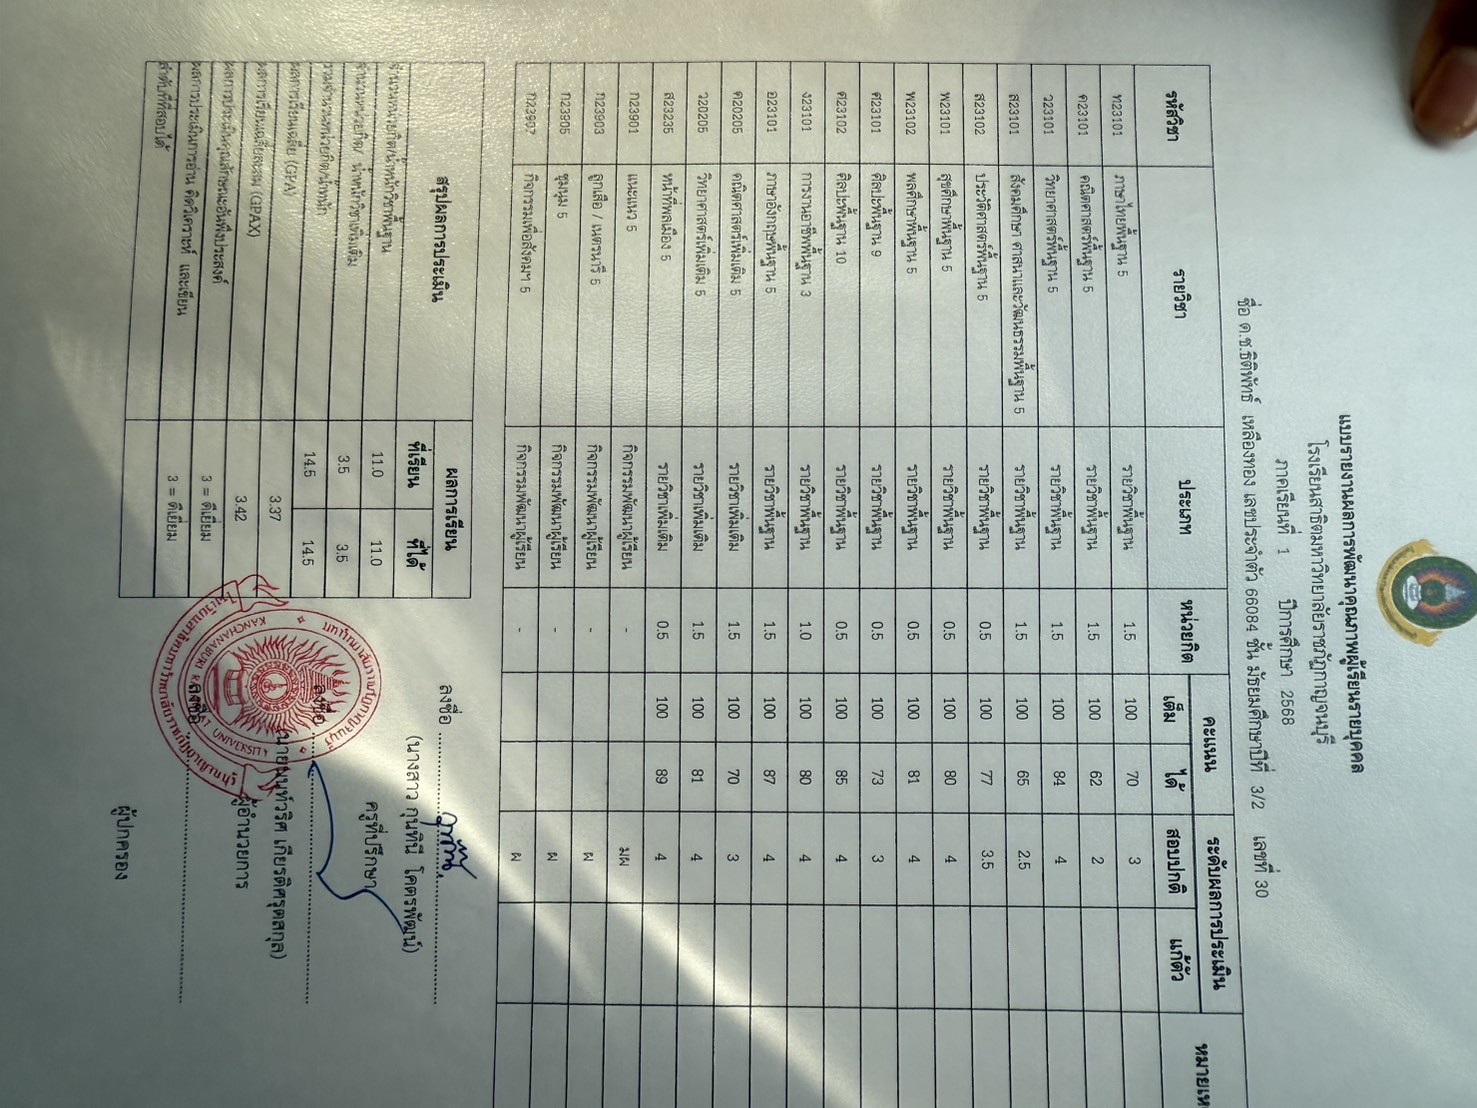 แบบรายงานผลการพัฒนาคุณภาพผู้เรียนรายบุคคล
โรงเรียนสาธิตมหาวิทยาลัยราชภัฏกาญจนบุรี
ภาคเรียนที่ 1 ปีการศึกษา 2568
ชื่อ ด.ช.ธิติพัทธ์ เหลืองทอง เลขประจำตัว 66084 ชั้น มัธยมศึกษาปีที่ 3/2 เลขที่ 30
รหัสวิชา รายวิชา ประเภท หน่วยกิต คะแนน ระดับผลการประเมิน
เต็ม ได้ สอบปกติ แก้ตัว
ท23101 ภาษาไทยพื้นฐาน 5 รายวิชาพื้นฐาน 1.5 100 70 3
ค23101 คณิตศาสตร์พื้นฐาน 5 รายวิชาพื้นฐาน 1.5 100 62 2
ว23101 วิทยาศาสตร์พื้นฐาน 5 รายวิชาพื้นฐาน 1.5 100 84 4
ส23101 สังคมศึกษา ศาสนาและวัฒนธรรมพื้นฐาน 5 รายวิชาพื้นฐาน 1.5 100 65 2.5
ส23102 ประวัติศาสตร์พื้นฐาน 5 รายวิชาพื้นฐาน 0.5 100 77 3.5
พ23101 สุขศึกษาพื้นฐาน 5 รายวิชาพื้นฐาน 0.5 100 80 4
พ23102 พลศึกษาพื้นฐาน 5 รายวิชาพื้นฐาน 0.5 100 81 4
ศ23101 ศิลปะพื้นฐาน 9 รายวิชาพื้นฐาน 0.5 100 73 3
ศ23102 ศิลปะพื้นฐาน 10 รายวิชาพื้นฐาน 0.5 100 85 4
ง23101 การงานอาชีพพื้นฐาน 3 รายวิชาพื้นฐาน 1.0 100 80 4
อ23101 ภาษาอังกฤษพื้นฐาน 5 รายวิชาพื้นฐาน 1.5 100 87 4
ค20205 คณิตศาสตร์เพิ่มเติม 5 รายวิชาเพิ่มเติม 1.5 100 70 3
ว20205 วิทยาศาสตร์เพิ่มเติม 5 รายวิชาเพิ่มเติม 1.5 100 81 4
ส23235 หน้าที่พลเมือง 5 รายวิชาเพิ่มเติม 0.5 100 89 4
ก23901 แนะแนว 5 กิจกรรมพัฒนาผู้เรียน - มผ
ก23903 ลูกเสือ / เนตรนารี 5 กิจกรรมพัฒนาผู้เรียน - ผ
ก23905 ชุมนุม 5 กิจกรรมพัฒนาผู้เรียน - ผ
ก23907 กิจกรรมเพื่อสังคมฯ 5 กิจกรรมพัฒนาผู้เรียน - ผ
สรุปผลการประเมิน ผลการเรียน
ที่เรียน ที่ได้
จำนวนหน่วยกิต/น้ำหนักวิชาพื้นฐาน 11.0 11.0
จำนวนหน่วยกิต/ น้ำหนักวิชาเพิ่มเติม 3.5 3.5
รวมจำนวนหน่วยกิต/น้ำหนัก 14.5 14.5
ผลการเรียนเฉลี่ย (GPA) 3.37
ผลการเรียนเฉลี่ยสะสม (GPAX) 3.42
ผลการประเมินคุณลักษณะอันพึงประสงค์ 3 = ดีเยี่ยม
ผลการประเมินการอ่าน คิดวิเคราะห์ และเขียน 3 = ดีเยี่ยม
ลำดับที่ที่สอบได้
ลงชื่อ
(นางสาว กุนทินี โคตรพัฒน์)
ครูที่ปรึกษา
ลงชื่อ
(นายนนท์วริศ เกียรติศรุตสกุล)
ผู้อำนวยการ
ลงชื่อ
ผู้ปกครอง
โรงเรียนสาธิตมหาวิทยาลัยราชภัฏกาญจนบุรี
KANCHANABURI RAJABHAT UNIVERSITY